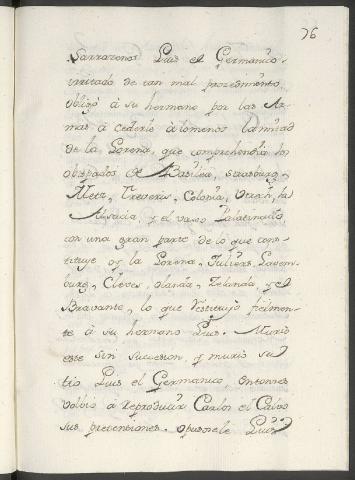 76
Sarrazenos Luis el Germanico
irritado de tan mal procedimiento
obligó à su hermano por las Ar-
mas à cederle àlomenos lamitad
de la Lorena, que comprehendia los
obispados de Basilea, Strasburg,
Metz, Treveris, Colonia, Utrech, la
Alsacia y el vaxo Palatinado
con una gran parte de lo que cons-
tituye oy la Lorena, Juliers, Luxem-
burg, Cleves, olanda, Zelanda, y el
Bravante, lo que restituyó fielmen-
te à su hermano Luis. Murió
esse sin succession, y murió su
tio Luis el Germanico, entonses
volbió à reproducir Carlos el Calvo
sus pretensiones. opusosele Luis